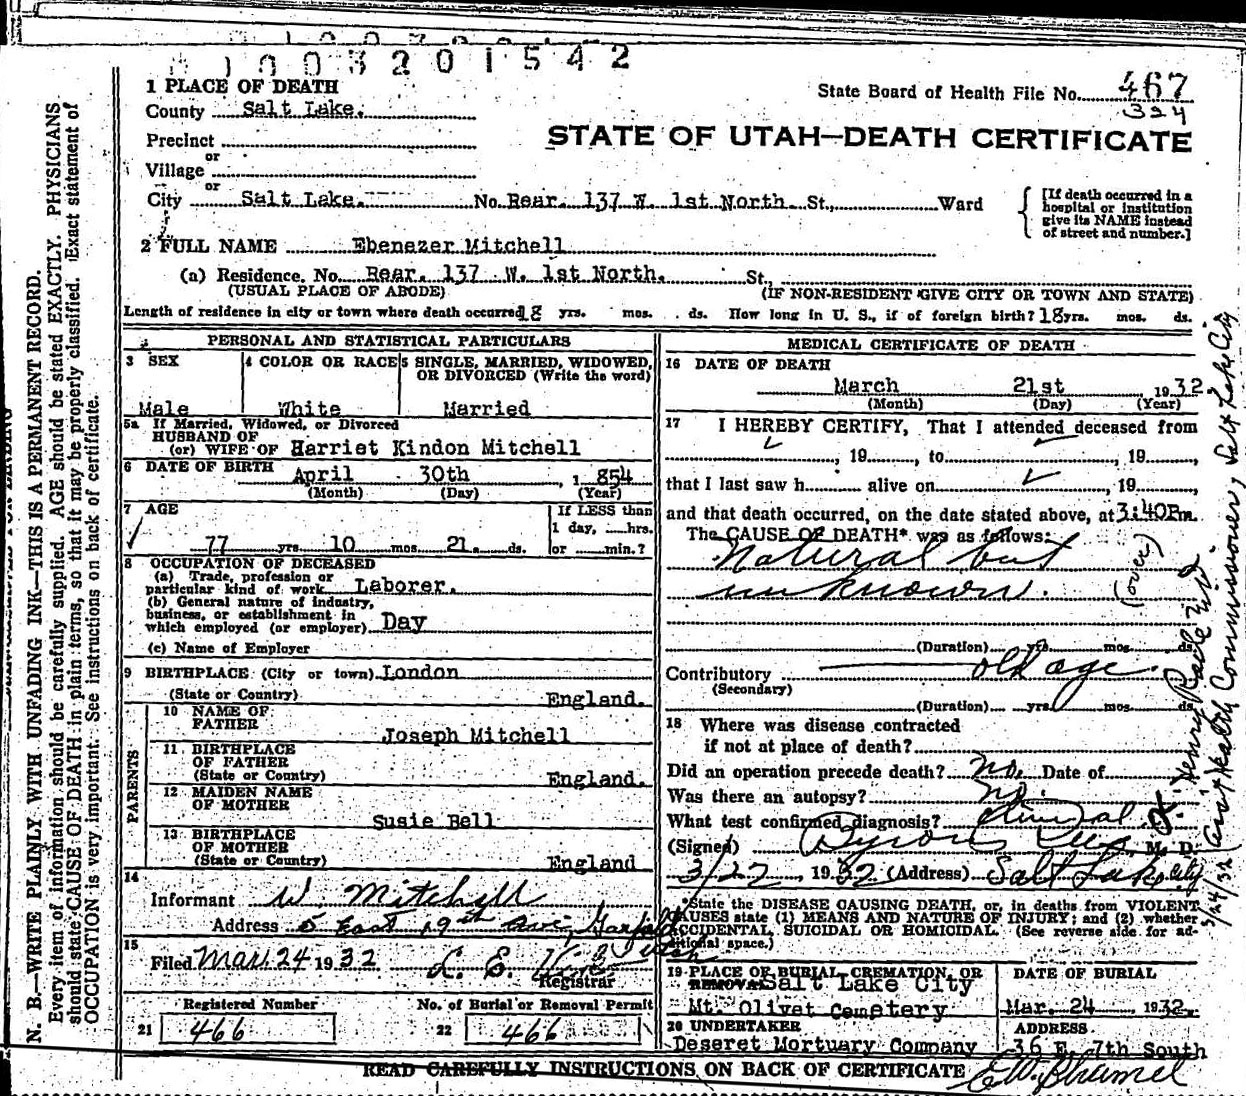 1003201542
1 PLACE OF DEATH
State Board of Health File No. 467
324
County Salt Lake.
STATE OF UTAH—DEATH CERTIFICATE
Precinct
or
Village
or
City Salt Lake. No. Rear. 137 W. 1st North St., Ward
[If death occurred in a hospital or institution give its NAME instead of street and number.]
2 FULL NAME Ebenezer Mitchell
(a) Residence. No. Rear. 137 W. 1st North. St.,
(USUAL PLACE OF ABODE) (IF NON-RESIDENT GIVE CITY OR TOWN AND STATE)
Length of residence in city or town where death occurred 18 yrs. mos. ds. How long in U. S., if of foreign birth? 18 yrs. mos. ds.
PERSONAL AND STATISTICAL PARTICULARS
3 SEX
Male
4 COLOR OR RACE
White
5 SINGLE, MARRIED, WIDOWED, OR DIVORCED (Write the word)
Married
5a If Married, Widowed, or Divorced
HUSBAND OF
(or) WIFE OF Harriet Kindon Mitchell
6 DATE OF BIRTH April 30th, 1854
(Month) (Day) (Year)
7 AGE
77 yrs. 10 mos. 21. ds.
If LESS than
1 day, hrs.
or min.?
8 OCCUPATION OF DECEASED
(a) Trade, profession or
particular kind of work Laborer.
(b) General nature of industry,
business, or establishment in
which employed (or employer) Day
(c) Name of Employer
9 BIRTHPLACE (City or town) London
(State or Country) England.
PARENTS
10 NAME OF
FATHER Joseph Mitchell
11 BIRTHPLACE
OF FATHER
(State or Country) England.
12 MAIDEN NAME
OF MOTHER Susie Bell
13 BIRTHPLACE
OF MOTHER
(State or Country) England
14
Informant W. Mitchell
Address 5 East 19th Ave, Garfield Utah
15
Filed Mar. 24 1932 L. E.
Registrar
Registered Number
21 466
No. of Burial or Removal Permit
22 466
MEDICAL CERTIFICATE OF DEATH
16 DATE OF DEATH
March 21st 1932
(Month) (Day) (Year)
17 I HEREBY CERTIFY, That I attended deceased from
, 19, to, 19,
that I last saw h alive on, 19,
and that death occurred, on the date stated above, at 3:40Pm.
The CAUSE OF DEATH* was as follows:
Natural but
unknown.
(over)
(Duration) yrs. mos. ds.
Contributory old age.
(Secondary)
(Duration) yrs. mos. ds.
18 Where was disease contracted
if not at place of death?
Did an operation precede death? no. Date of
Was there an autopsy? no.
What test confirmed diagnosis? clinical
(Signed) Byron Rees, M. D.
3/22, 1932 (Address) Salt Lake City
*State the DISEASE CAUSING DEATH, or, in deaths from VIOLENT
CAUSES state (1) MEANS AND NATURE OF INJURY; and (2) whether
ACCIDENTAL, SUICIDAL OR HOMICIDAL. (See reverse side for ad-
ditional space.)
19 PLACE OF BURIAL, CREMATION, OR
REMOVAL Salt Lake City
Mt. Olivet Cemetery
DATE OF BURIAL
Mar. 24 1932.
20 UNDERTAKER
Deseret Mortuary Company
ADDRESS
36 E. 7th South
READ CAREFULLY INSTRUCTIONS ON BACK OF CERTIFICATE
N. B.—WRITE PLAINLY WITH UNFADING INK—THIS IS A PERMANENT RECORD.
Every item of information should be carefully supplied. AGE should be stated EXACTLY. PHYSICIANS
should state CAUSE OF DEATH in plain terms, so that it may be properly classified. Exact statement of
OCCUPATION is very important. See instructions on back of certificate.
3/24/32 Health Commissioner, Salt Lake City